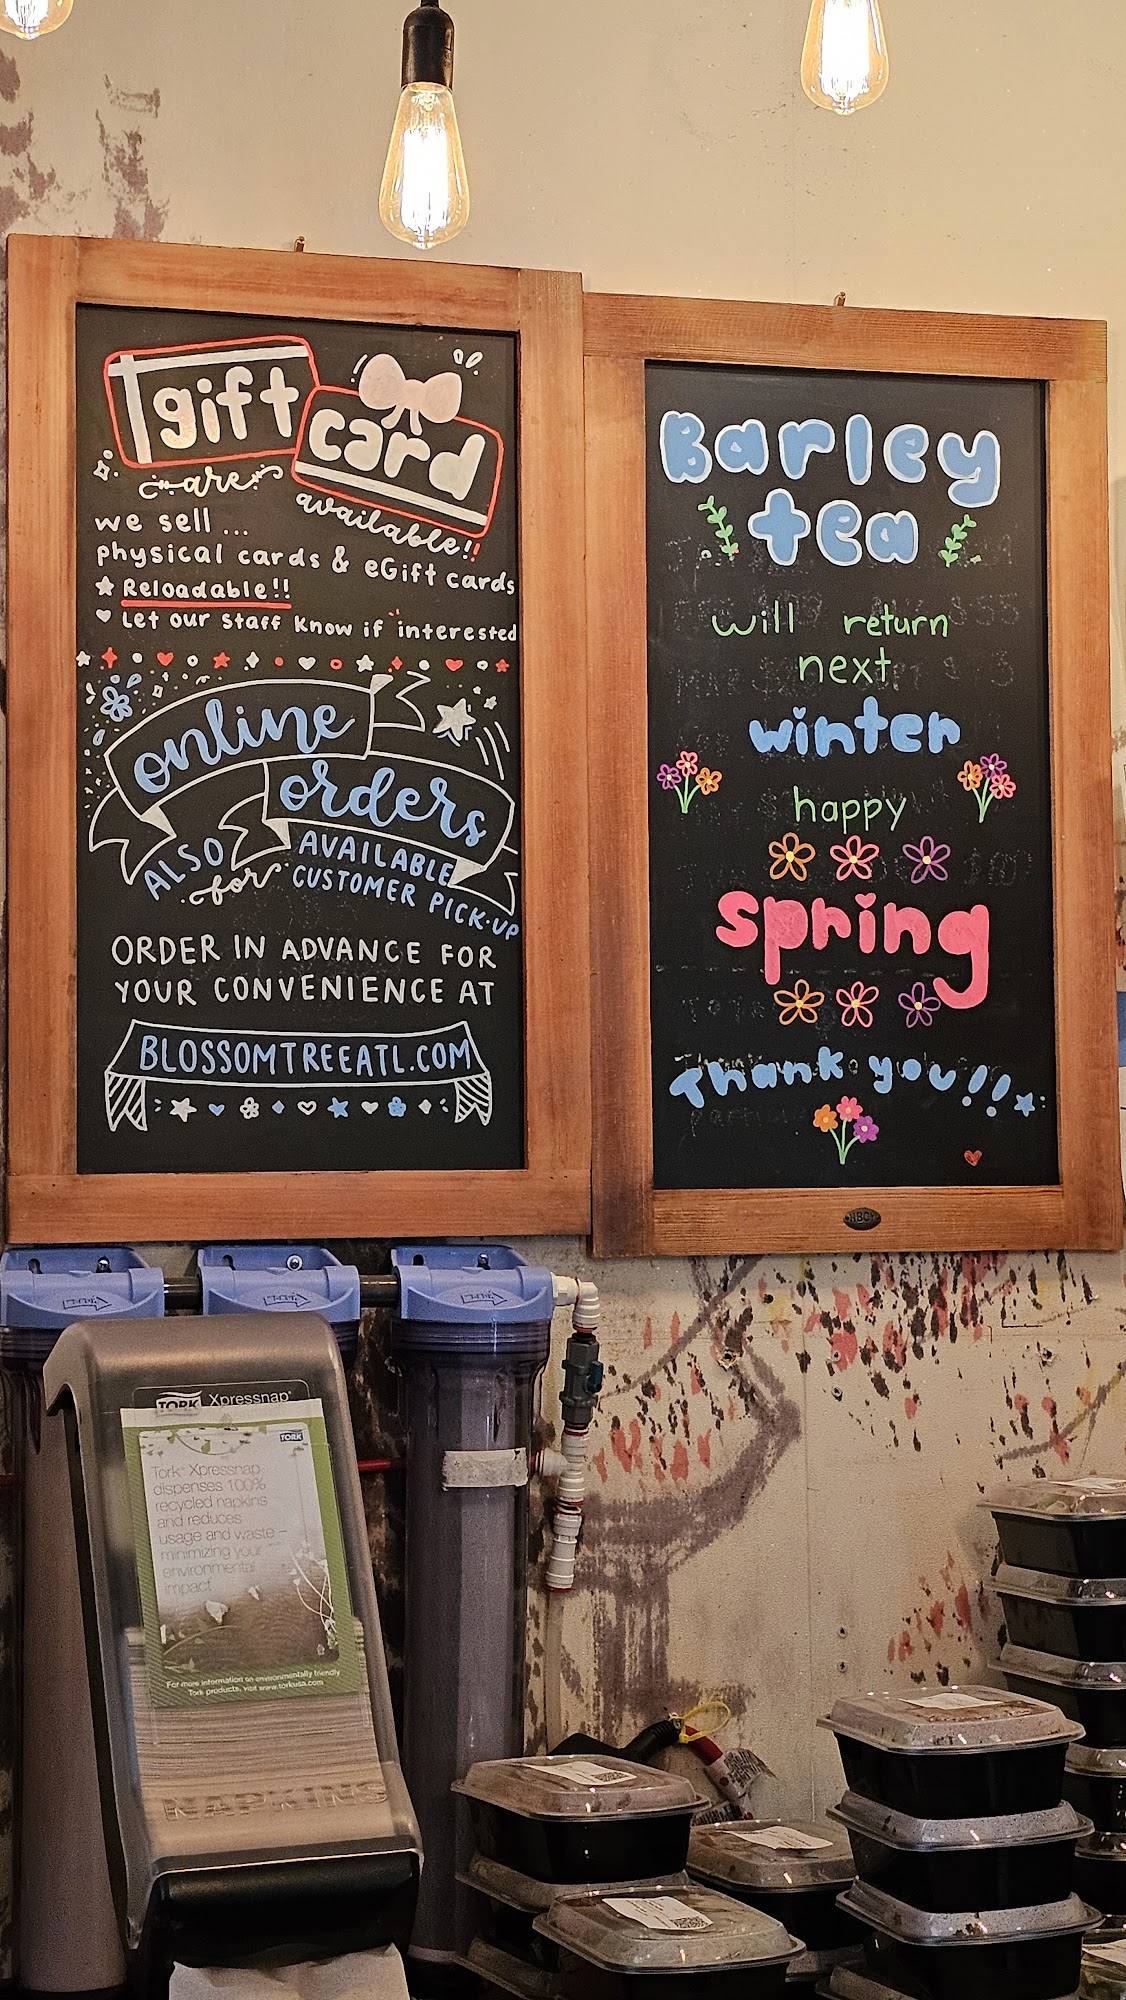 gift
card
are
available!!
we sell...
physical cards & eGift cards
Reloadable!!
Let our staff know if interested
online
orders
ALSO
for
AVAILABLE
CUSTOMER PICK-UP
ORDER IN ADVANCE FOR
YOUR CONVENIENCE AT
BLOSSOMTREEATL.COM
Barley
tea
will return
next
winter
happy
spring
Thank you!!
TORK Xpressnap®
TORK
Tork® Xpressnap
dispenses 100%
recycled napkins
and reduces
usage and waste –
minimizing your
environmental
impact
For more information on environmentally friendly
Tork products, visit www.torkusa.com
NAPKINS